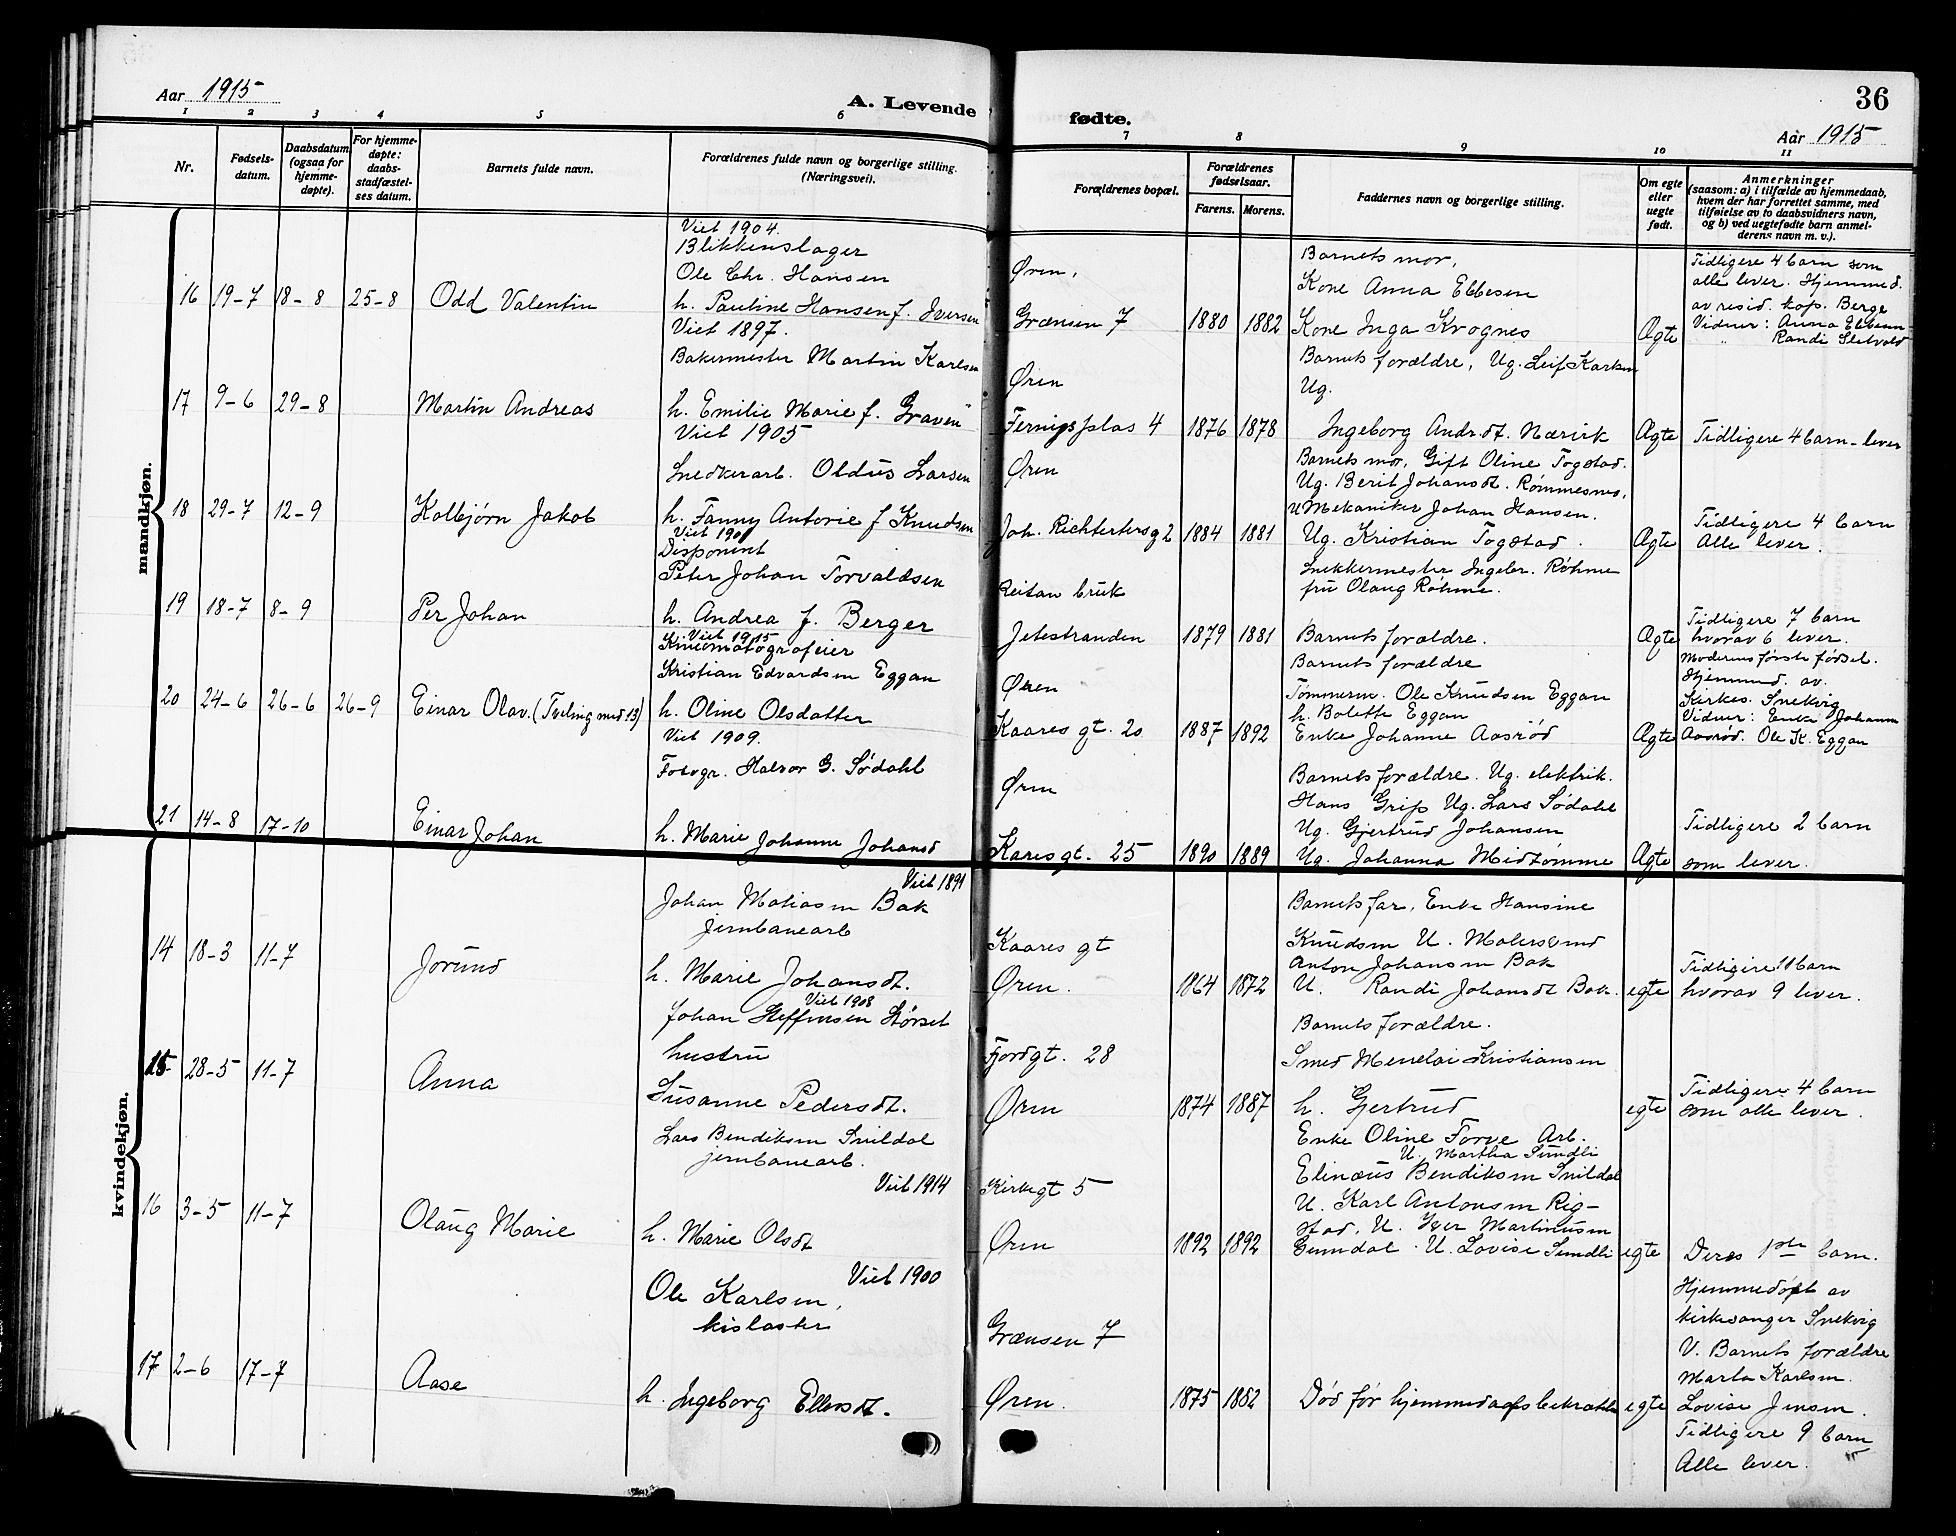 Aar 1915
A. Levende
fødte.
36
Aar 1915
1 2 3 4 5 6 7 8 9 10 11
Nr.
Fødsels-
datum.
Daabsdatum
(ogsaa for
hjemme-
døpte).
For hjemme-
døpte:
daabs-
stadfæstel-
ses datum.
Barnets fulde navn.
Forældrenes fulde navn og borgerlige stilling.
(Næringsvei).
Forældrenes bopæl.
Forældrenes
fødselsaar.
Farens. Morens.
Faddernes navn og borgerlige stilling.
Om egte
eller
uegte
født.
Anmerkninger
(saasom: a) i tilfælde av hjemmedaab,
hvem der har forrettet samme, med
tilføielse av to daabsvidners navn,
og b) ved uegtefødte barn anmel-
derens navn m. v.).
mandkjøn.
16 19-7 18-8 25-8 Odd Valentin
Viet 1904.
Blikkenslager
Ole Chr. Hansen
h. Pauline Hansen f. Iversen
Øren,
Grænsen 7
1880 1882
Barnets mor,
Kone Anna Ebbesen
Kone Inga Krognes
Ægte
Tidligere 4 barn som
alle lever. Hjemmed.
av resid. kap. Berge
Vidner: Anna Ebbesen
" Randi Sletvold
17 9-6 29-8 Martin Andreas
Viet 1897.
Bakermester Martin Karlsen
h. Emilie Marie f. Graven
Øren
Fernigsplas 4
1876 1878
Barnets forældre, Ug. Leif Karlsen
Ug.
Ingeborg Andr.dt. Nærirk
Ægte
Tidligere 4 barn - lever
18 29-7 12-9 Kolbjørn Jakob
Viet 1905
Snedkerarb. Oldus Larsen
h. Fanny Antonie f Knudsen
Øren
Joh. Richtertersg 2
1884 1881
Barnets mor, Gift Oline Togstad.
Ug. Berit Johansdt. Rømmesnes,
U Mekaniker Johan Hansen.
Ug. Kristian Togstad.
Ægte
Tidligere 4 barn
Alle lever.
19 18-7 8-9 Per Johan
Viet 1901
Disponent
Peter Johan Torvaldsen
h. Andrea f. Berger
Reitan bruk
Jetestranden
1879 1881
Snekkermester Ingebr. Røhme
fru Olaug Røhme.
Barnets forældre.
Ægte
Tidligere 7 barn
hvorav 6 lever.
20 24-6 26-6 26-9 Einar Olav. (Tveling med 13)
Viet 1915
Kinematografeier
Kristian Edvardsen Eggan
h. Oline Olsdatter
Øren
Kaares gt. 20
1887 1892
Barnets forældre
Tømmerm. Ole Knudsen Eggan
h. Bolette Eggan
Enke Johanne Aasrød
Ægte
Moderens første fødsel.
Hjemmed. av.
Kirkes. Snekvig
Vidner: Enke Johanne
Aasrød. Ole K. Eggan
21 14-8 17-10 Einar Johan
Viet 1909.
Fotogr. Halvor G. Sødahl
h. Marie Johanne Johansd
Øren
Kares gt. 25
1890 1889
Barnets forældre. Ug. elektrik.
Hans Grip Ug. Lars Sødahl
Ug. Gjertrud Johansen
Ug. Johanna Midtømme
Ægte
Tidligere 2 barn
som lever.
kvindekjøn.
14 18-3 11-7 Jorund
Viet 1891
Johan Matiasen Bak
jernbanearb
h. Marie Johansdt.
Kaares gt
Øren.
1864 1872
Barnets far, Enke Hansine
Knudsen U. Malersvend
Anton Johansen Bak
U. Randi Johansdt Bak.
egte
Tidligire 11 barn
hvorav 9 lever.
15 28-5 11-7 Anna
Viet 1908
Johan Steffensen Størset
hustru
Susanne Pedersdt.
Fjordgt. 28
Øren
1874 1887
Barnets forældre.
Smed Menelai Kristiansen
h. Gjertrud
egte
Tidligere 4 barn
som alle lever.
16 3-5 11-7 Olaug Marie
Lars Bendiksen Snildal
jernbanearb.
Viet 1914
h. Marie Olsdt
Kirkegt 5
Øren
1892 1892
Enke Oline Torve Arb.
U. Martha Sundli
Elinæus Bendiksen Snildal
U. Karl Antonsen Rig-
stad, U. Iver Martinusen
Gumdal. U. Lovise Sundli
egte
Deres 1ste barn.
17 2-6 17-7 Aase
Viet 1900
Ole Karlsen,
kislaster
h. Ingeborg Ellensdt.
Grænsen 7
Øren.
1875 1882
Død før hjemmedaabs bekræftelse
egte
Hjemmedøpt av
kirkesanger Snekvig
V. Barnets forældre
Marta Karlsen.
Lovise Jensen.
Tidligere 9 barn
Alle lever.